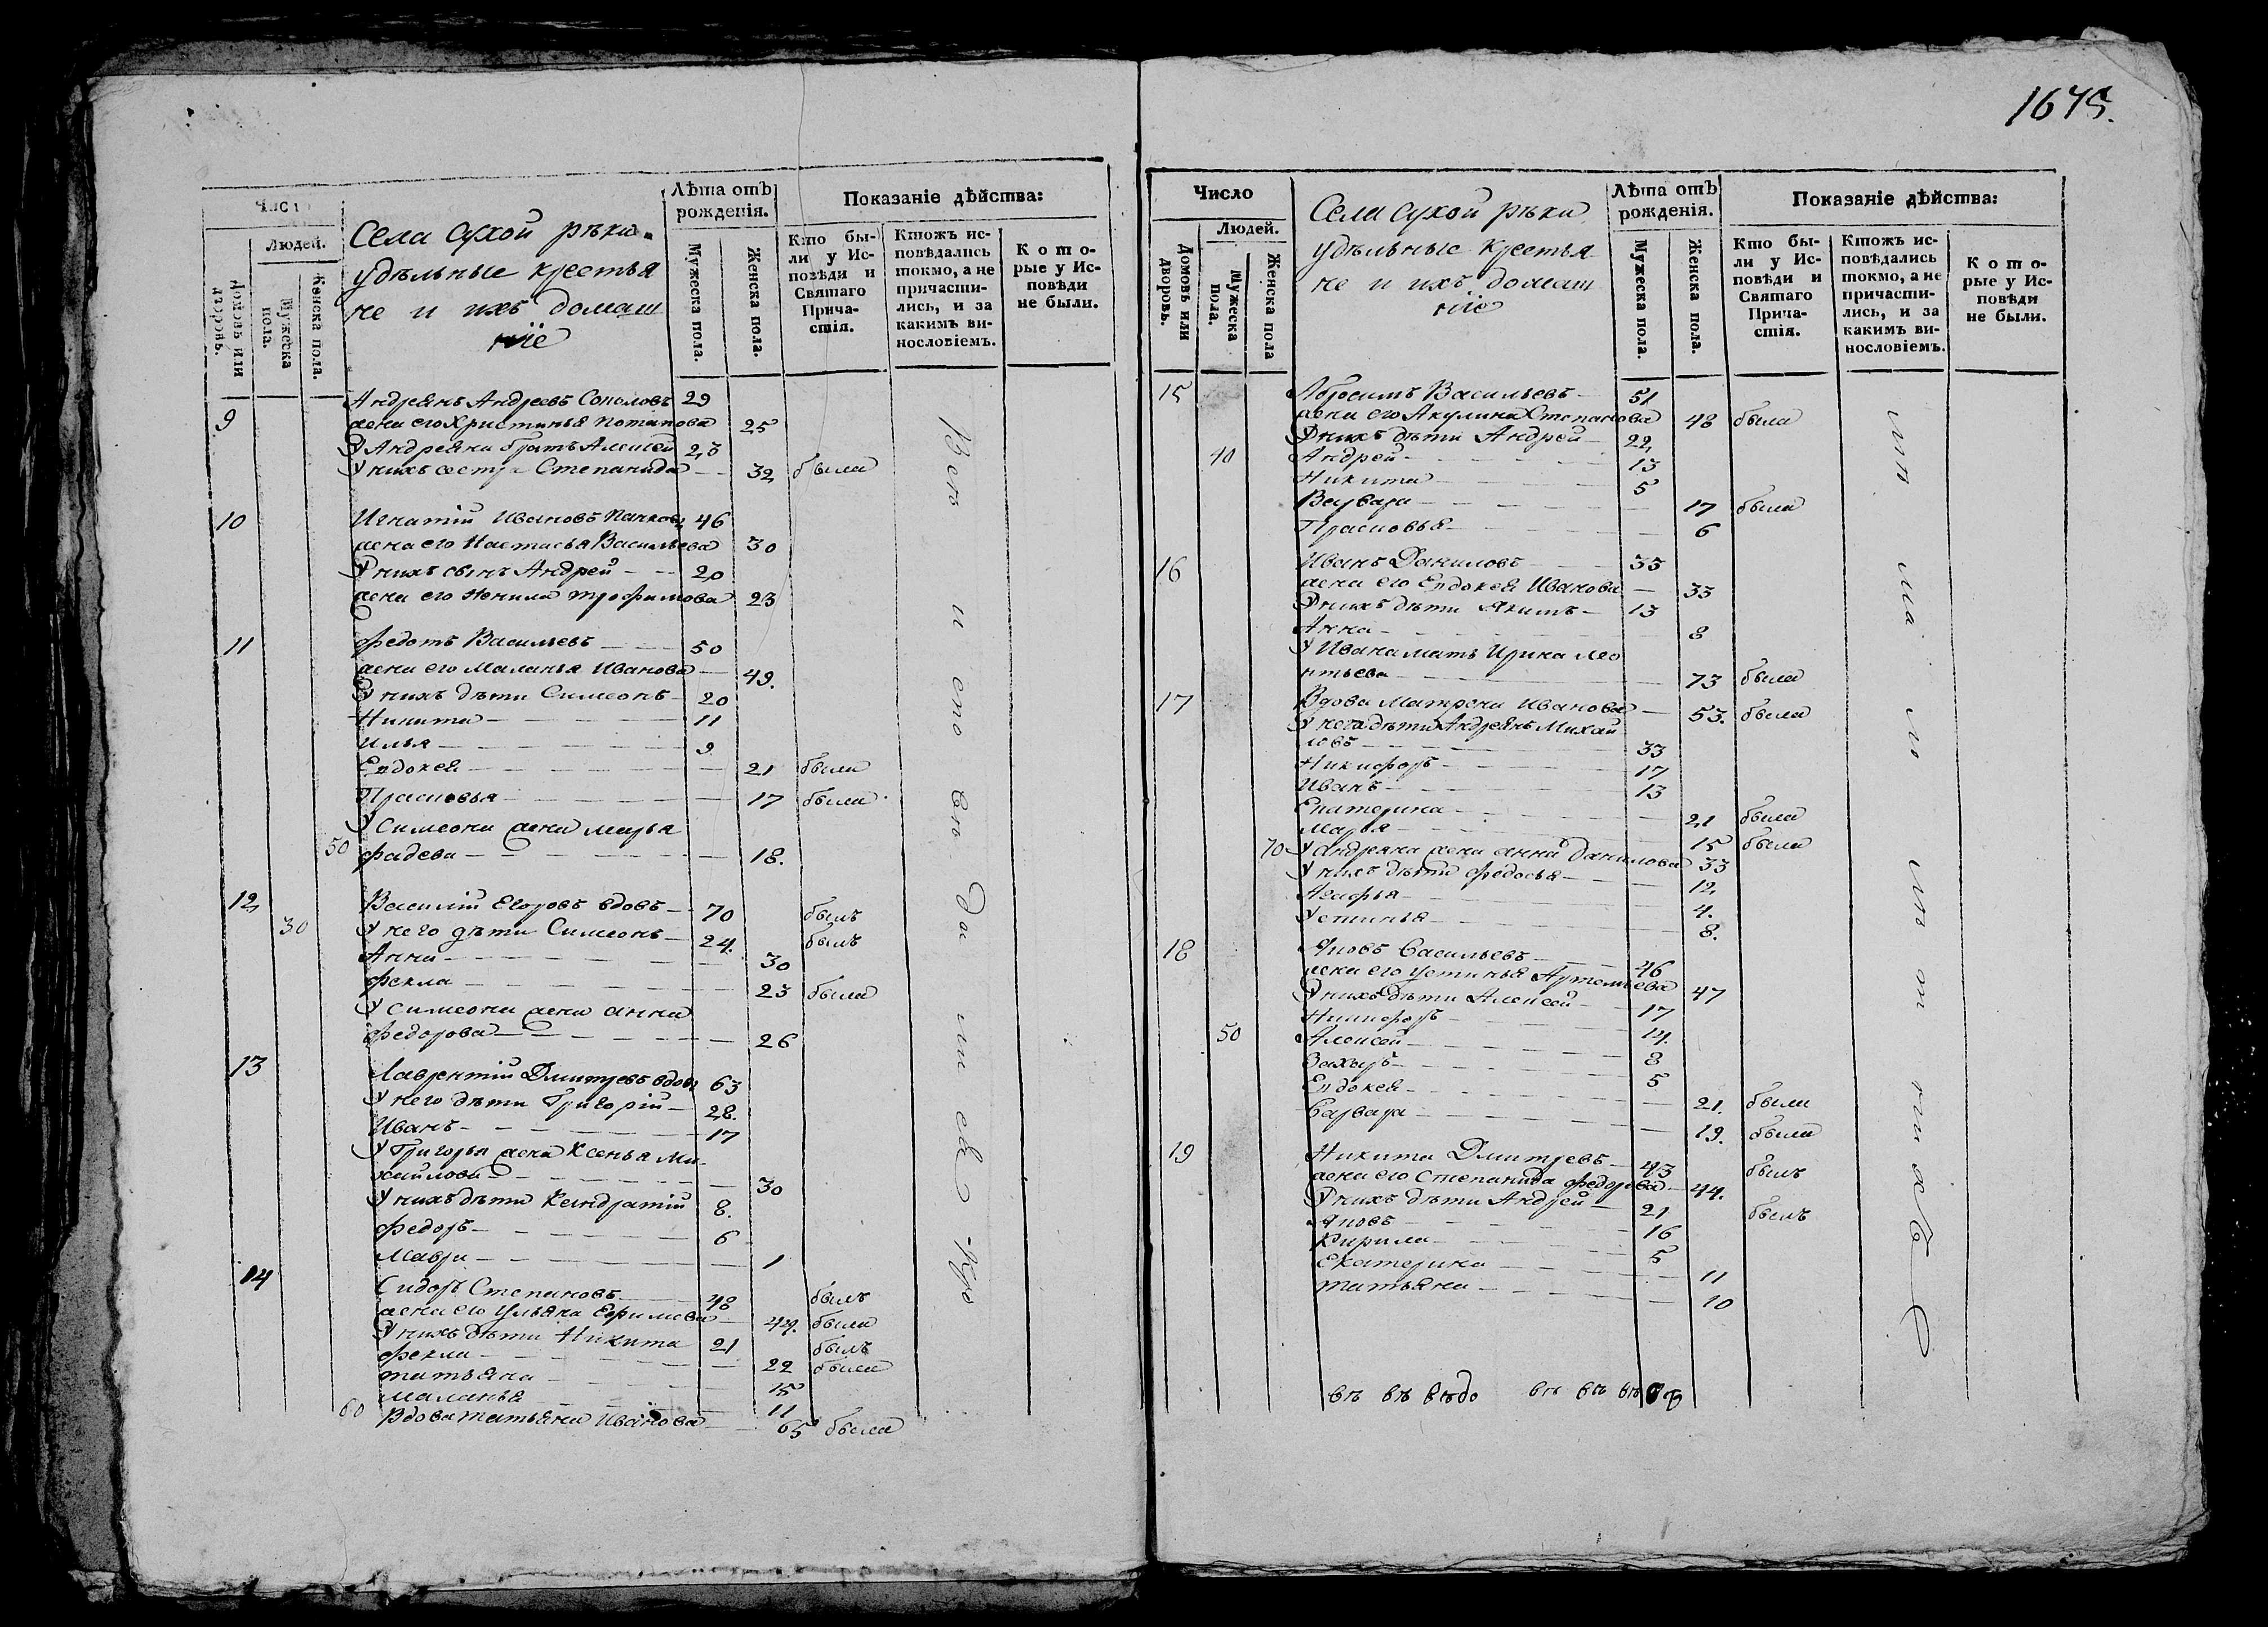 1675.
Число
Людей.
Домовъ или дворовъ.
Мужеска пола.
Женска пола.
Села Сухой рѣки
удѣльные крестья
не и ихъ домаш
ніе
Лѣта отъ рожденія.
Мужеска пола.
Женска пола.
Показаніе дѣйства:
Кто бы-
ли у Ис-
повѣди и
Святаго
Прича-
стія.
Ктожъ ис-
повѣдались
токмо, а не
причасти-
лись, и за
какимъ ви-
нословіемъ.
Кото-
рые у Ис-
повѣди
не были.
9 Андреянъ Андреевъ Соколовъ 29
жена его Христинья Потапова 25
У Андреяна братъ Алексей 23
У нихъ сестра Степанида 32 была
10 Игнатій Ивановъ 46
жена его Настасья Васильева 30
У нихъ сынъ Андрей 20
жена его Ненила Трофимова 23
11 Федотъ Васильевъ 50
жена его Маланья Иванова 49.
У нихъ дѣти Симеонъ 20
Никита 11
Илья 9
Евдокея 21 была
Прасковья 17 была
У Симеона жена Марья
50 Фадева 18.
12 Василій Егоровъ вдовъ 70 былъ
30 У него дѣти Симеонъ 24. былъ
Анна 30
Фекла 23 была
У Симеона жена Анна
Федорова 26
13 Лаврентій Дмитревъ вдовъ 63
У него дѣти Григорій 28.
Иванъ 17
У Григорья жена Ксенья Ми-
хайлова 30
У нихъ дѣти Кандратій 8.
Федоръ 6
Мавра 1
14 Сидоръ Степановъ 48 былъ
жена его Ульяна Ефримова 44. была
У нихъ дѣти Никита 21 былъ
Фекла 22 была
Татьяна 15
Маланья 11
60 Вдова Татьяна Иванова 65 была
Число
Людей.
Домовъ или дворовъ.
Мужеска пола.
Женска пола
Села Сухой рѣки
удѣльные крестья
не и ихъ домаш
ніе
Лѣта отъ рожденія.
Мужеска пола.
Женска пола.
Показаніе дѣйства:
Кто бы-
ли у Ис-
повѣди и
Святаго
Прича-
стія.
Ктожъ ис-
повѣдались
токмо, а не
причасти-
лись, и за
какимъ ви-
нословіемъ.
Кото-
рые у Ис-
повѣди
не были.
15 Абросимъ Васильевъ 51
жена его Акулина Степанова 48 была
У нихъ дѣти Андрей 22
40 Андрей 13
Никита 5
Варвара 17 была
Прасковья 6
16 Иванъ Даниловъ 33
жена его Евдокея Иванова 33
У нихъ дѣти Якимъ 13
Анна 8
У Ивана мать Ирина Лео
нтьева 73 была
17 Вдова Матрена Иванова 53. была
У нея дѣти Андреянъ Михай
ловъ 33
Никифоръ 17
Иванъ 13
Екатерина 21 была
Марья 15 была
70 У Андреяна жена Анна Данилова 33
У нихъ дѣти Федосья 12
Агафья 4.
Устинья 8.
18 Яковъ Васильевъ 46
жена его Устинья Артемьева 47
У нихъ дѣти Алексей 17
Никифоръ 14.
50 Алексей 8
Захаръ 5
Евдокея 21. была
Варвара 19. была
19 Никита Дмитревъ 43 былъ
жена его Степанида Федорова 44.
У нихъ дѣти Андрей 21 былъ
Яковъ 16
Кирила 5
Екатерина 11
Татьяна 10